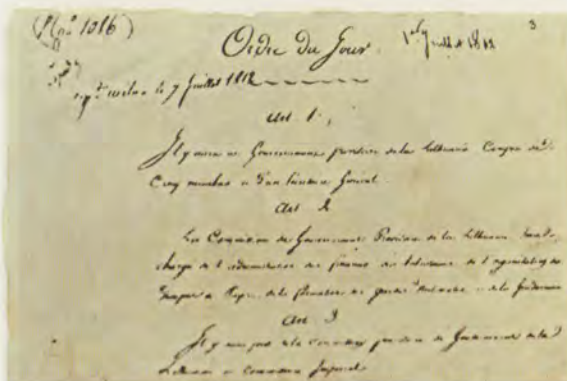 (No 1016) 3
Ordre du Jour. 1er Juillet 1812
Wilna le 7 Juillet 1812
Art 1.
Il y aura un Gouvernement provisoire de la Lithuanie Composé de
Cinq membres et d'un Secrétaire Général.
Art 2
La Commission de Gouvernement Provisoire de la Lithuanie sera
chargée de l'administration des finances des subsistances de l'organisation des
troupes du Pays, de la formation des gardes nationales et de la Gendarmerie
Art 3
Il y aura près de la Commission provisoire de Gouvernement de la
Lithuanie un Commissaire Impérial